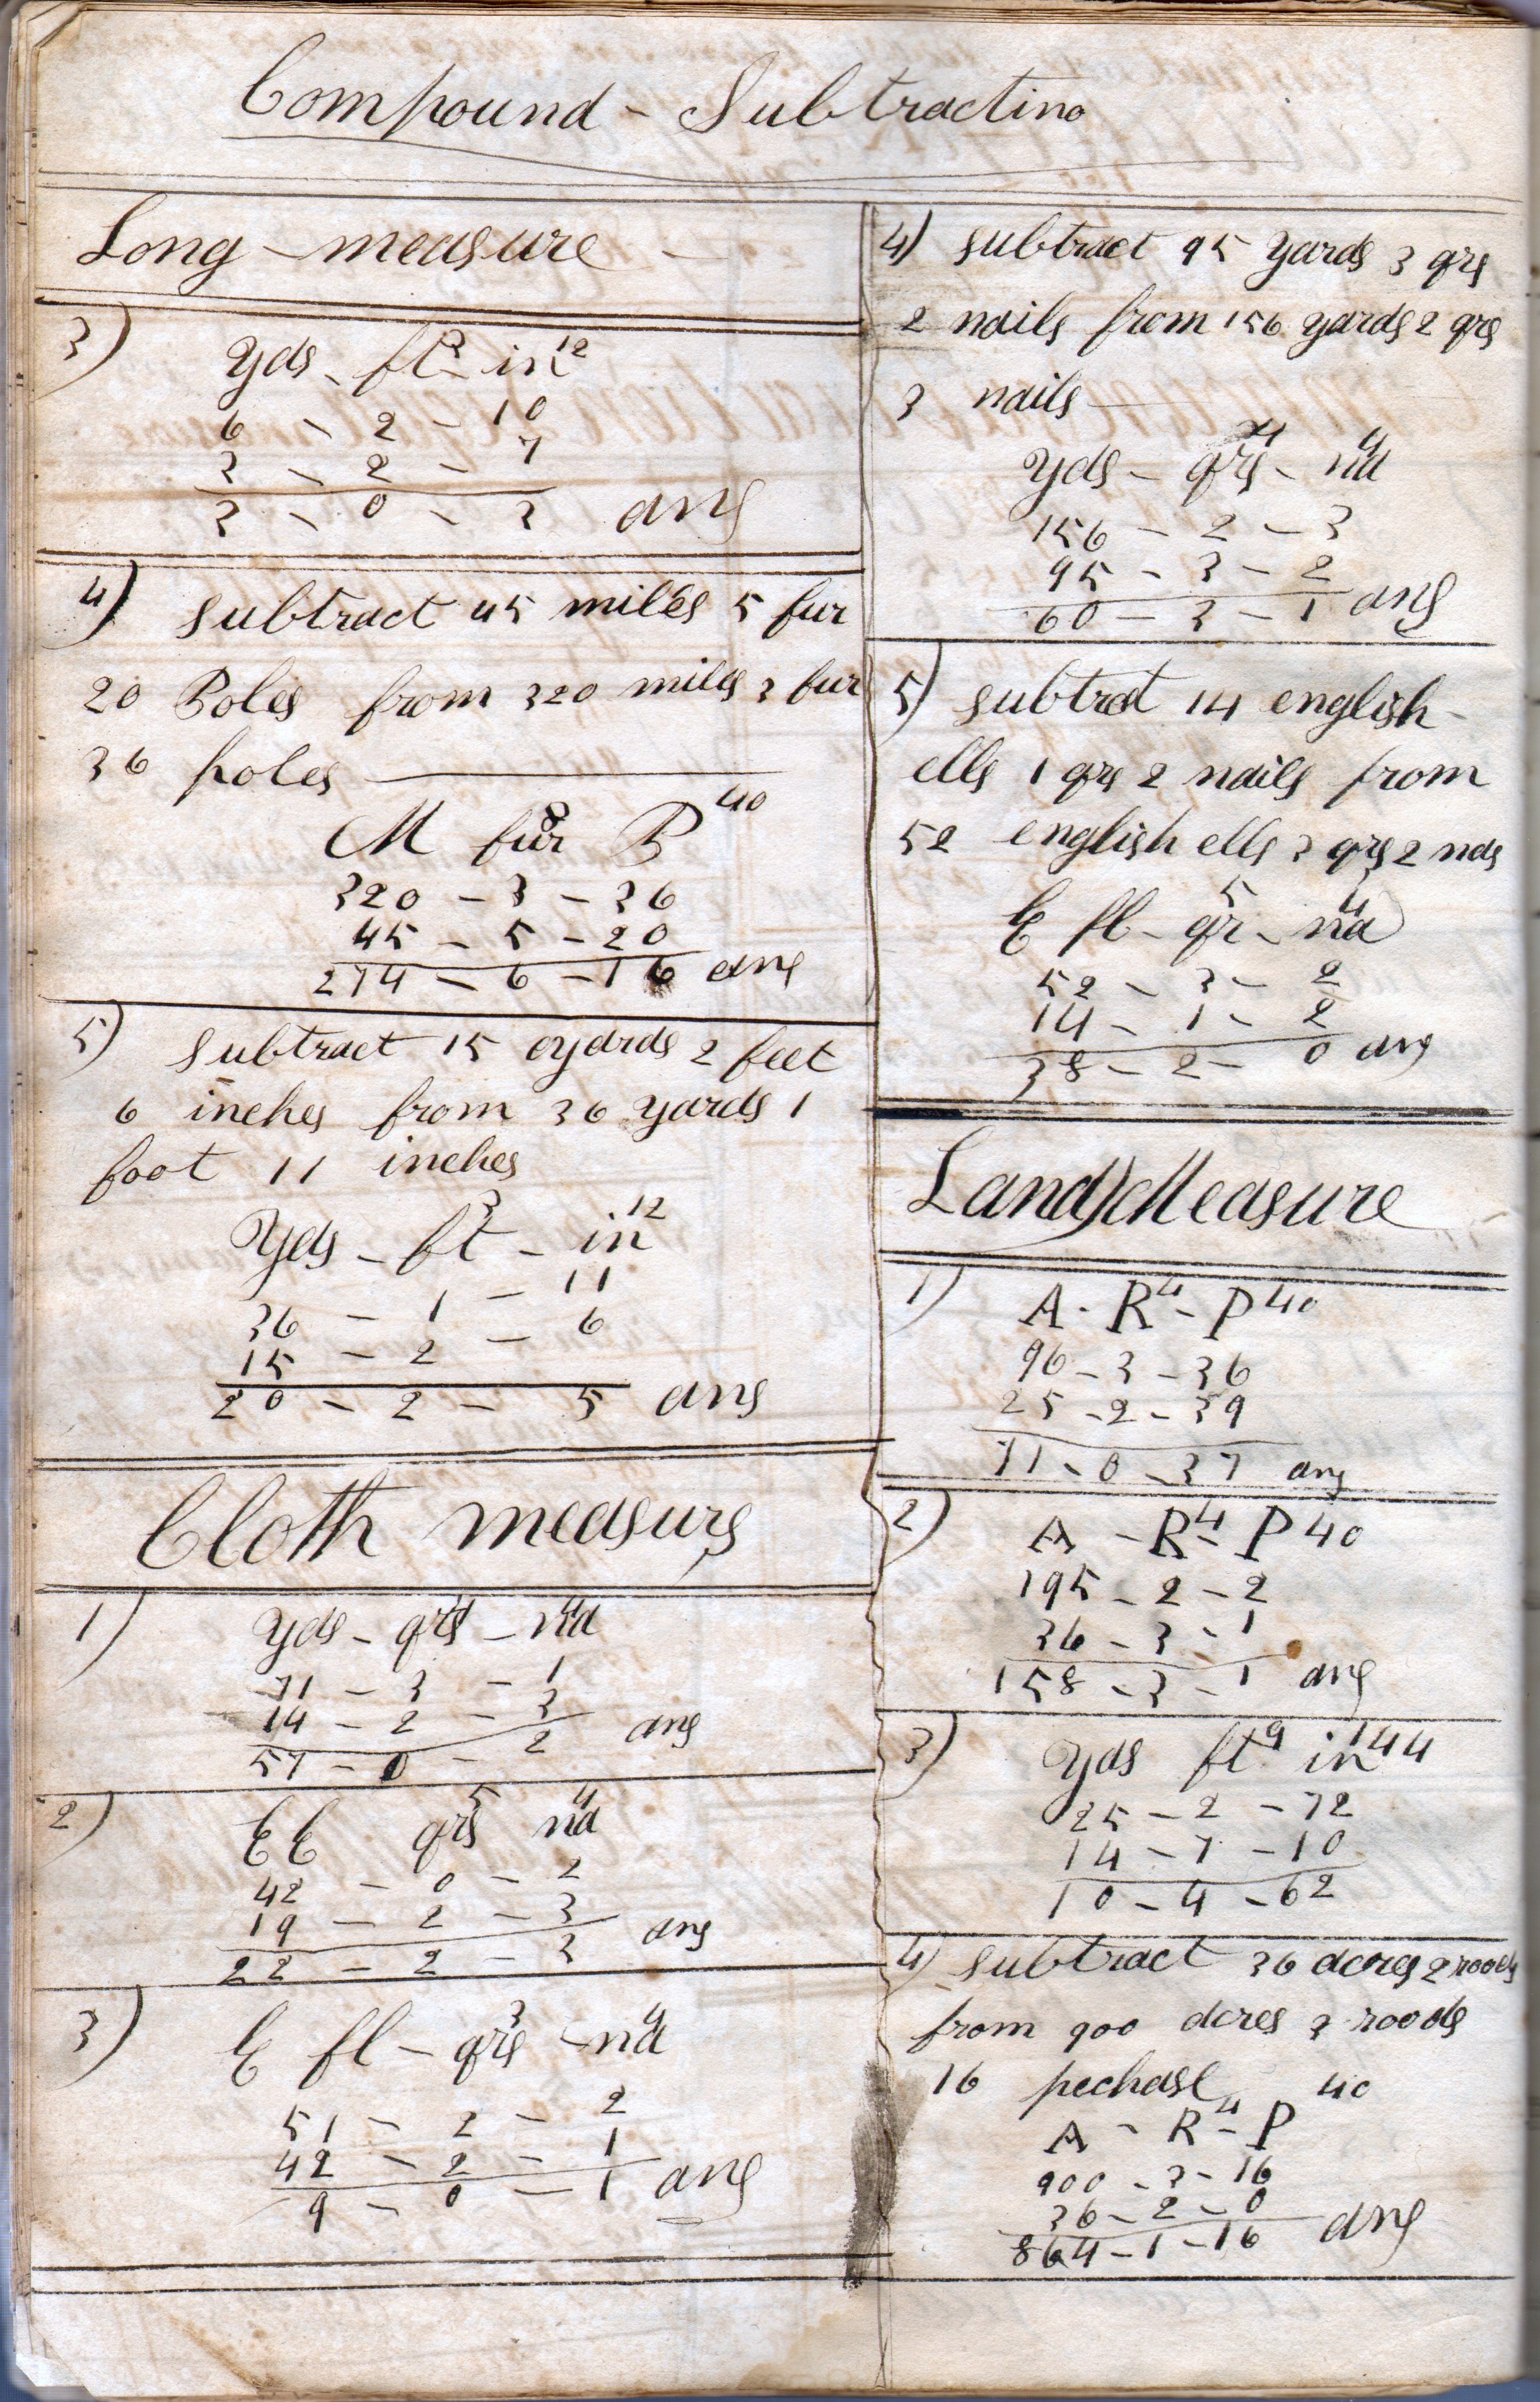 Compound - Subtractino
Long - measure -
3)
Yds - ft 3 - in 12
6 - 2 - 10
3 - 2 - 7
3 - 0 - 3 ans
4) subtract 45 miles 5 fur
20 Poles from 320 miles 3 fur
36 poles
M fur 8 P 40
320 - 3 - 36
45 - 5 - 20
274 - 6 - 16 ans
5) subtract 15 yards 2 feet
6 inches from 36 yards 1
foot 11 inches
Yds - ft 3 - in 12
36 - 1 - 11
15 - 2 - 6
20 - 2 - 5 ans
Cloth measurs
1)
Yds - qrs 4 - na 4
71 - 3 - 1
14 - 2 - 3
57 - 0 - 2 ans
2)
E E qrs 5 na 4
42 - 0 - 2
19 - 2 - 3
22 - 2 - 3 ans
3)
E fl - qrs 3 - na 4
51 - 2 - 2
42 - 2 - 1
9 - 0 - 1 ans
4) subtract 95 yards 3 qrs
2 nails from 156 yards 2 qrs
3 nails
Yds - qrs 4 - na 4
156 - 2 - 3
95 - 3 - 2
60 - 3 - 1 ans
5) subtrct 14 english
ells 1 qrs 2 nails from
52 english ells 3 qrs 2 nds
E fl - qr 5 - na 4
52 - 3 - 2
14 - 1 - 2
38 - 2 - 0 ans
Land Measure
1)
A - R 4 - P 40
96 - 3 - 36
25 - 2 - 39
71 - 0 - 37 ans
2)
A - R 4 - P 40
195 - 2 - 2
36 - 3 - 1
158 - 3 - 1 ans
3)
Yds ft 9 in 144
25 - 2 - 72
14 - 7 - 10
10 - 4 - 62
4) subtract 36 acres 2 roods
from 900 acres 3 roods
16 pechase
A - R 4 - P 40
900 - 3 - 16
36 - 2 - 0
864 - 1 - 16 ans